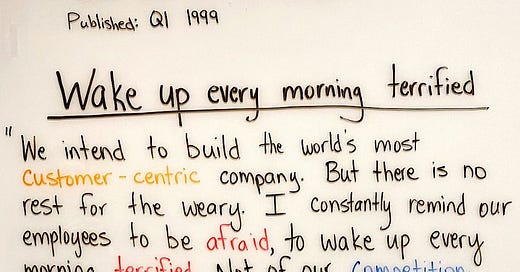 Published: Q1 1999
Wake up every morning terrified
"We intend to build the world's most
customer-centric company. But there is no
rest for the weary. I constantly remind our
employees to be afraid, to wake up every
morning terrified. Not of our competition,